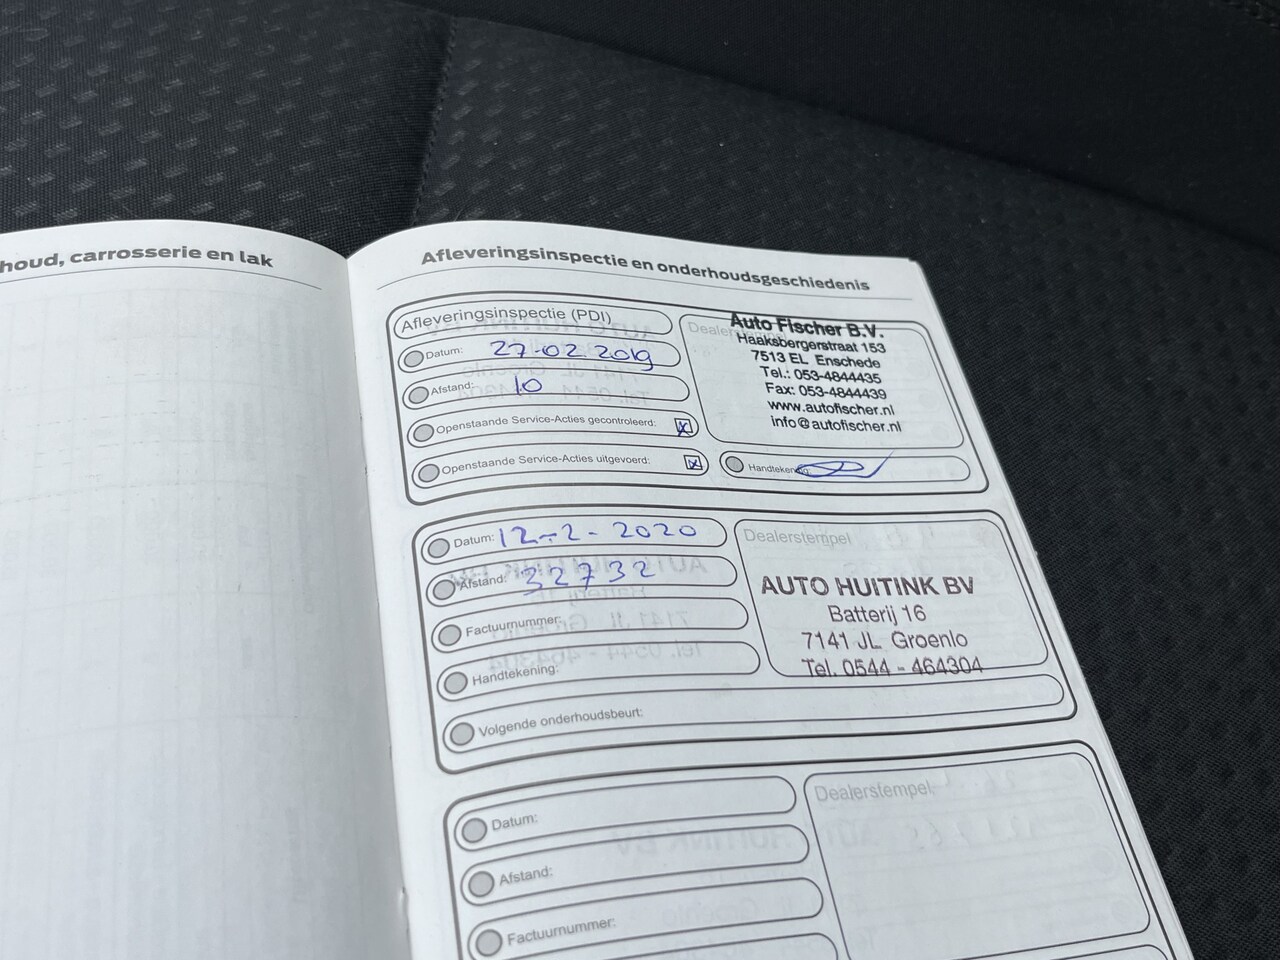 houd, carrosserie en lak
Afleveringsinspectie en onderhoudsgeschiedenis
Afleveringsinspectie (PDI)
Datum: 27-02 2019
Afstand: 10
Openstaande Service-Acties gecontroleerd: x
Openstaande Service-Acties uitgevoerd: x
Dealerstempel
Auto Fischer B.V.
Haaksbergerstraat 153
7513 EL Enschede
Tel.: 053-4844435
Fax: 053-4844439
www.autofischer.nl
info@autofischer.nl
Handtekening:
Datum: 12-2-2020
Afstand: 32732
Factuurnummer:
Handtekening:
Volgende onderhoudsbeurt:
Dealerstempel
AUTO HUITINK BV
Batterij 16
7141 JL Groenlo
Tel. 0544 - 464304
Datum:
Afstand:
Factuurnummer:
Dealerstempel